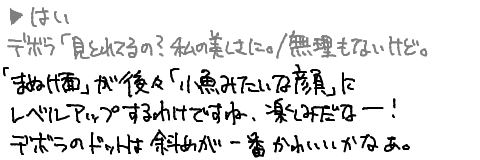 ▶はい
デボラ「見とれてるの?私の美しさに。/無理もないけど。
「まぬけ面」が後々「小魚みたいな顔」に
レベルアップするわけですね、楽しみだなー!
デボラのドットは斜めが一番かわいいかなぁ。